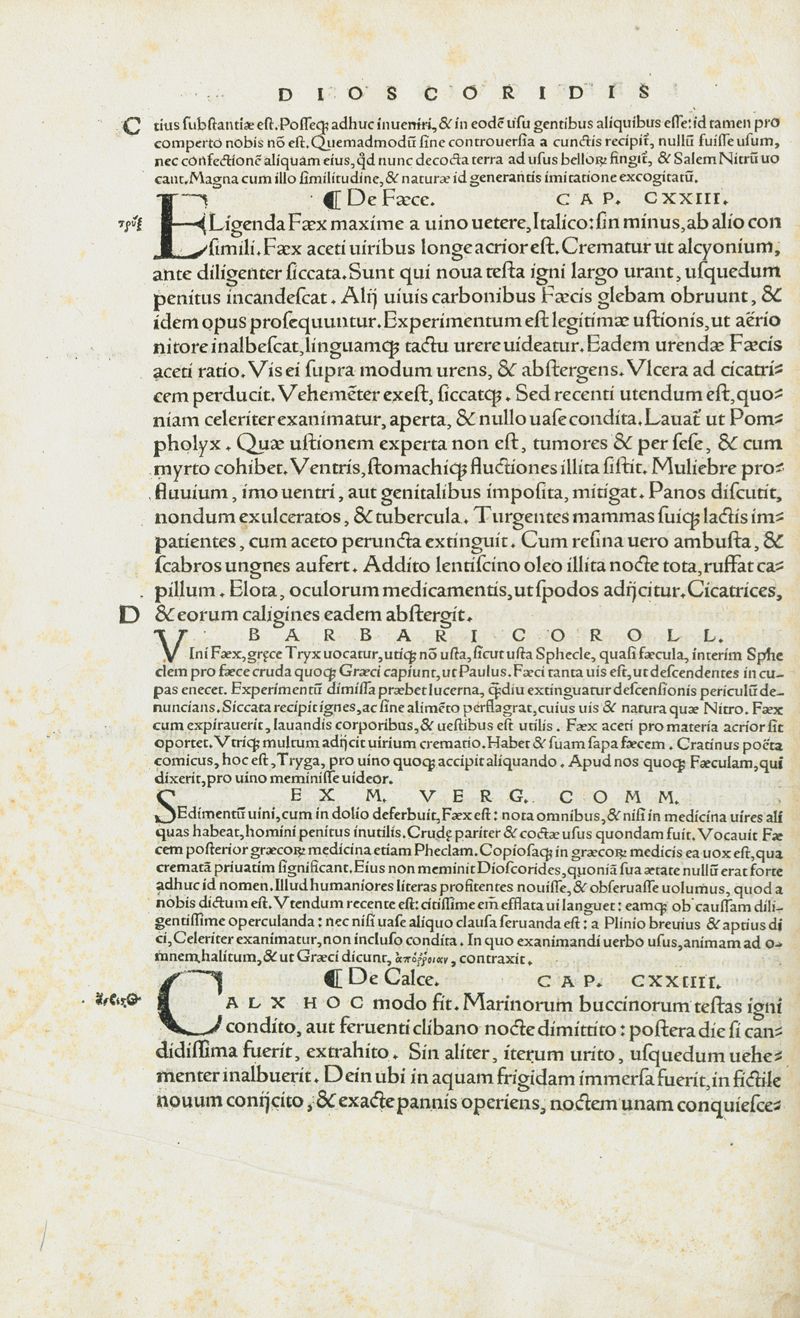 DIOSCORIDIS
C tius ſubſtantiæ eſt. Poſſeqꝫ adhuc inueniri, & in eodē uſu gentibus aliquibus eſſe: id tamen pro
comperto nobis nō eſt. Quemadmodū ſine controuerſia a cunctis recipit᷑, nullū fuiſſe uſum,
nec confectionē aliquam eius, qd̄ nunc decocta terra ad uſus belloꝝ fingit᷑, & Salem Nitrū uo
cant. Magna cum illo ſimilitudine, & naturæ id generantis imitatione excogitatū.
¶ De Fæce. CAP. CXXIII.
τρύξ ELigenda Fæx maxime a uino uetere, Italico: ſin minus, ab alio con
ſimili. Fæx aceti uiribus longe acrior eſt. Crematur ut alcyonium,
ante diligenter ſiccata. Sunt qui noua teſta igni largo urant, uſquedum
penitus incandeſcat. Alij uiuis carbonibus Fæcis glebam obruunt, &
idem opus proſequuntur. Experimentum eſt legitimæ uſtionis, ut aërio
nitore inalbeſcat, linguamqꝫ tactu urere uideatur. Eadem urendæ Fæcis
aceti ratio. Vis ei ſupra modum urens, & abſtergens. Vlcera ad cicatri⸗
cem perducit. Vehemēter exeſt, ſiccatqꝫ. Sed recenti utendum eſt, quo⸗
niam celeriter exanimatur, aperta, & nullo uaſe condita. Lauat᷑ ut Pom⸗
pholyx. Quæ uſtionem experta non eſt, tumores & per ſeſe, & cum
myrto cohibet. Ventris, ſtomachiqꝫ fluctiones illita ſiſtit. Muliebre pro⸗
fluuium, imo uentri, aut genitalibus impoſita, mitigat. Panos diſcutit,
nondum exulceratos, & tubercula. Turgentes mammas ſuiqꝫ lactis im⸗
patientes, cum aceto peruncta extinguit. Cum reſina uero ambuſta, &
ſcabros ungnes aufert. Addito lentiſcino oleo illita nocte tota, ruffat ca⸗
pillum. Elota, oculorum medicamentis, ut ſpodos adijcitur. Cicatrices,
D & eorum caligines eadem abſtergit.
BARBARI COROLL.
VIni Fæx, gręce Tryx uocatur, utiqꝫ nō uſta, ſicut uſta Sphecle, quaſi fæcula, interim Sphe
clem pro fæce cruda quoqꝫ Græci capiunt, ut Paulus. Fæci tanta uis eſt, ut deſcendentes in cu⸗
pas enecet. Experimentū dimiſſa præbet lucerna, q̄diu extinguatur deſcenſionis periculū de⸗
nuncians. Siccata recipit ignes, ac ſine alimēto perflagrat, cuius uis & natura quæ Nitro. Fæx
cum expirauerit, lauandis corporibus, & ueſtibus eſt utilis. Fæx aceti pro materia acrior ſit
oportet. Vtriqꝫ multum adijcit uirium crematio. Habet & ſuam ſapa fæcem. Cratinus poëta
comicus, hoc eſt, Tryga, pro uino quoqꝫ accipit aliquando. Apud nos quoqꝫ Fæculam, qui
dixerit, pro uino meminiſſe uideor.
EX M. VERG. COMM.
SEdimentū uini, cum in dolio deferbuit, Fæx eſt: nota omnibus, & niſi in medicina uires ali
quas habeat, homini penitus inutilis. Crudę pariter & coctæ uſus quondam fuit. Vocauit Fæ
cem poſterior græcoꝝ medicina etiam Pheclam. Copioſaqꝫ in græcoꝝ medicis ea uox eſt, qua
crematā priuatim ſignificant. Eius non meminit Dioſcorides, quoniā ſua ætate nullū erat forte
adhuc id nomen. Illud humaniores literas profitentes nouiſſe, & obſeruaſſe uolumus, quod a
nobis dictum eſt. Vtendum recente eſt: citiſſime em̄ efflata ui languet: eamqꝫ ob cauſſam dili⸗
gentiſſime operculanda: nec niſi uaſe aliquo clauſa ſeruanda eſt: a Plinio breuius & aptius di
ci, Celeriter exanimatur, non incluſo condita. In quo exanimandi uerbo uſus, animam ad o⸗
mnem halitum, & ut Græci dicunt, ἀπόῤῥοιαν, contraxit.
¶ De Calce. CAP. CXXIIII.
ἄσβεςος CALX HOC modo fit. Marinorum buccinorum teſtas igni
condito, aut feruenti clibano nocte dimittito: poſtera die ſi can⸗
didiſſima fuerit, extrahito. Sin aliter, iterum urito, uſquedum uehe⸗
menter inalbuerit. Dein ubi in aquam frigidam immerſa fuerit, in fictile
nouum conijcito, & exacte pannis operiens, noctem unam conquieſce⸗